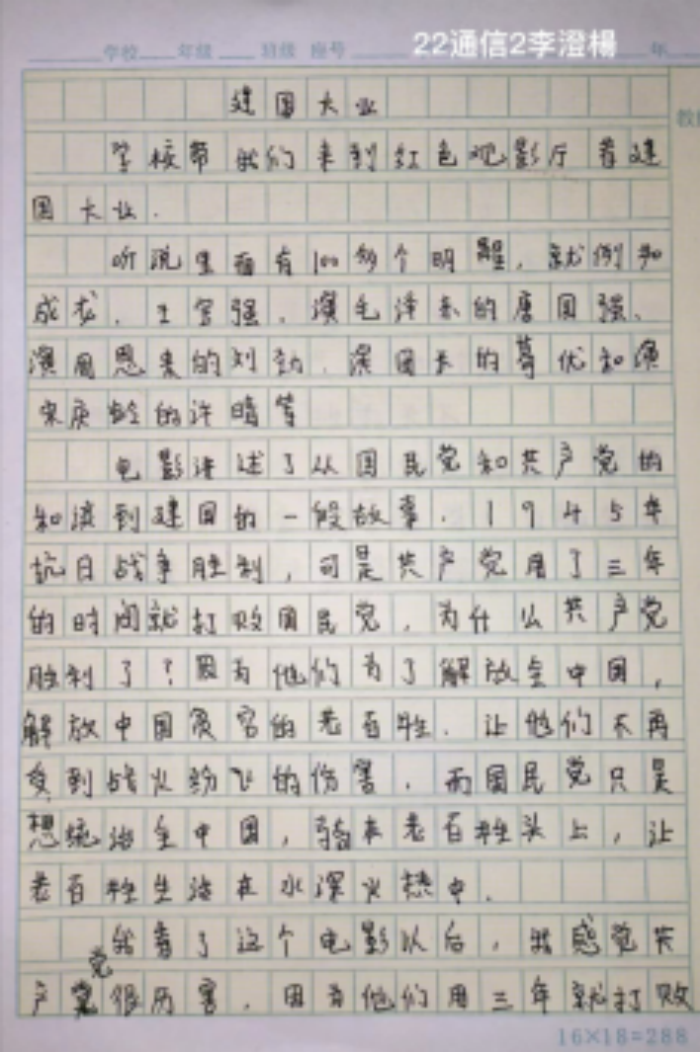 学校 年级 班级 座号 22通信2李澄楊 年
建国大业
学校带我们来到红色观影厅看建
国大业.
听说里面有100多个明星,就例如
成龙、王宝强、演毛泽东的唐国强、
演周恩来的刘劲、演团长的葛优和演
宋庆龄的许晴等
电影讲述了从国民党和共产党的
和谈到建国的一段故事.1945年
抗日战争胜利,可是共产党用了三年
的时间就打败国民党.为什么共产党
胜利了?因为他们为了解放全中国,
解放中国贫穷的老百牲.让他们不再
受到战火纷飞的伤害.而国民党只是
想统治全中国,骑在老百牲头上,让
老百牲生活在水深火热中.
我看了这个电影以后,我感觉共
产党很历害.因为他们用三年就打败
16×18=288